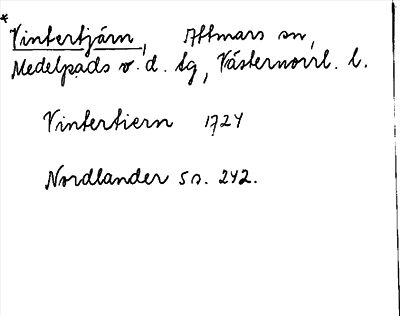 *
Vintertjärn, Attmars sn,
Medelpads v. d. tg, Västernorrl. l.
Vintertiern 1724
Nordlander s. 242.